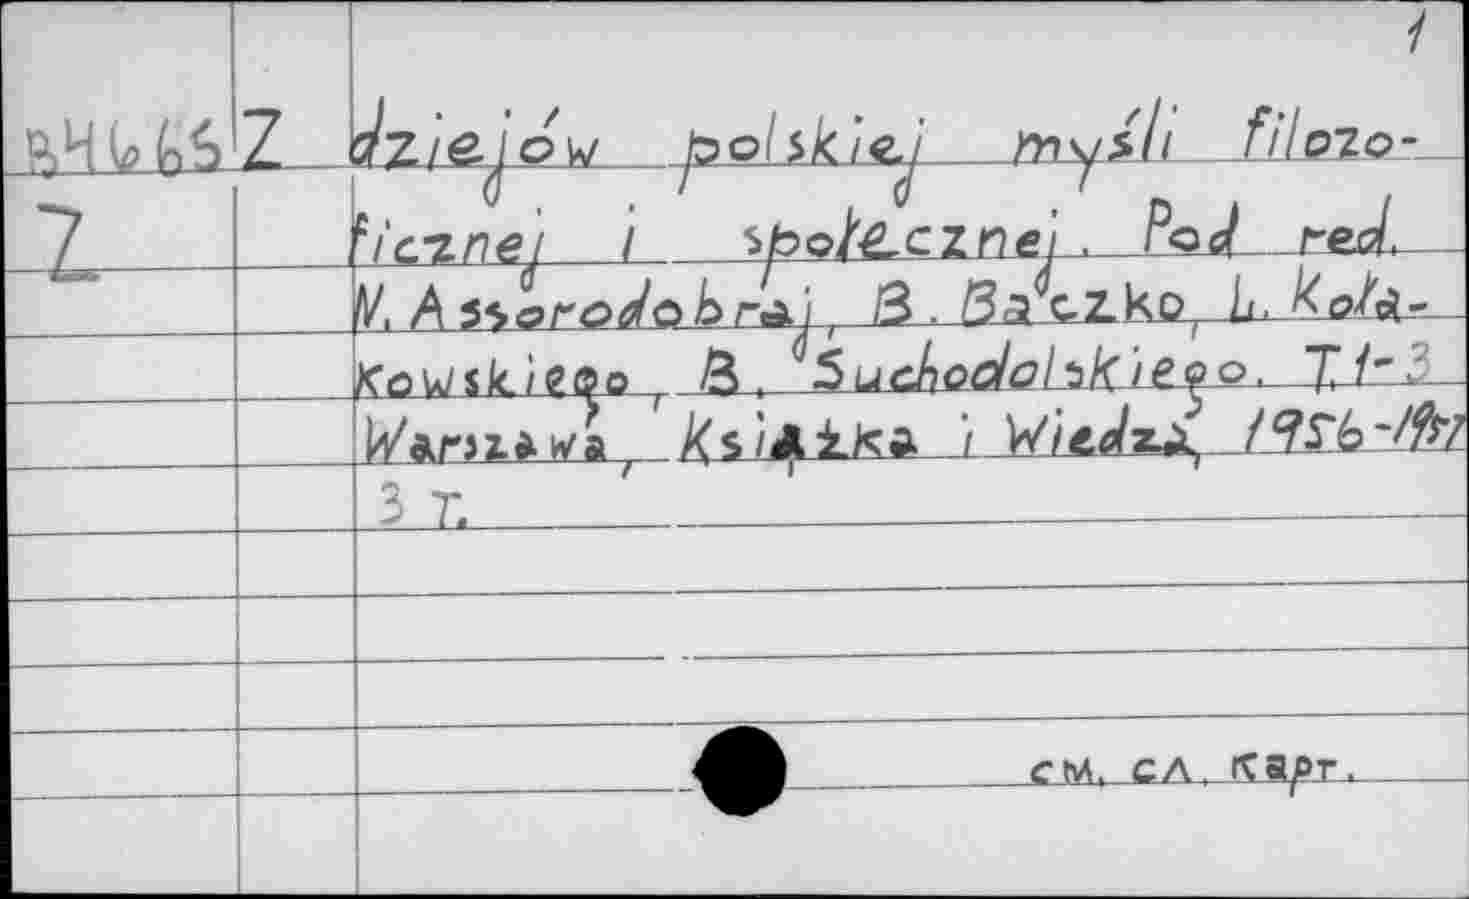 1
B4665 Z dziejów polskiej myśli filozo-
Z ficznej i społecznej. Pod red.
N. Assorodobraj, B. Baczko, L. Koła-
kowskiego, B. Suchodolskiego. T. 1-3
Warszawa, Książka i Wiedza, 1956-1957
3 т.
см. сл. карт.